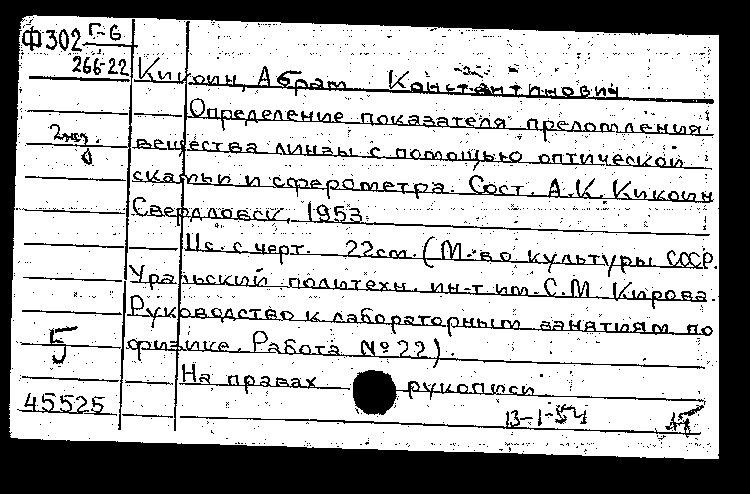 Ф302 Г-6
266-22
Кикоин, Абрам Константинович
Определение показателя преломления
2 экз.
вещества линзы с помощью оптической
скамьи и сферометра. Сост. А.К. Кикоин
Свердловск, 1953.
11с. с черт. 22см. (М-во культуры СССР.
Уральский политехн. ин-т им. С.М. Кирова.
Руководство к лабораторным занятиям по
5 физике. Работа №22).
На правах рукописи
45525
13-1-54